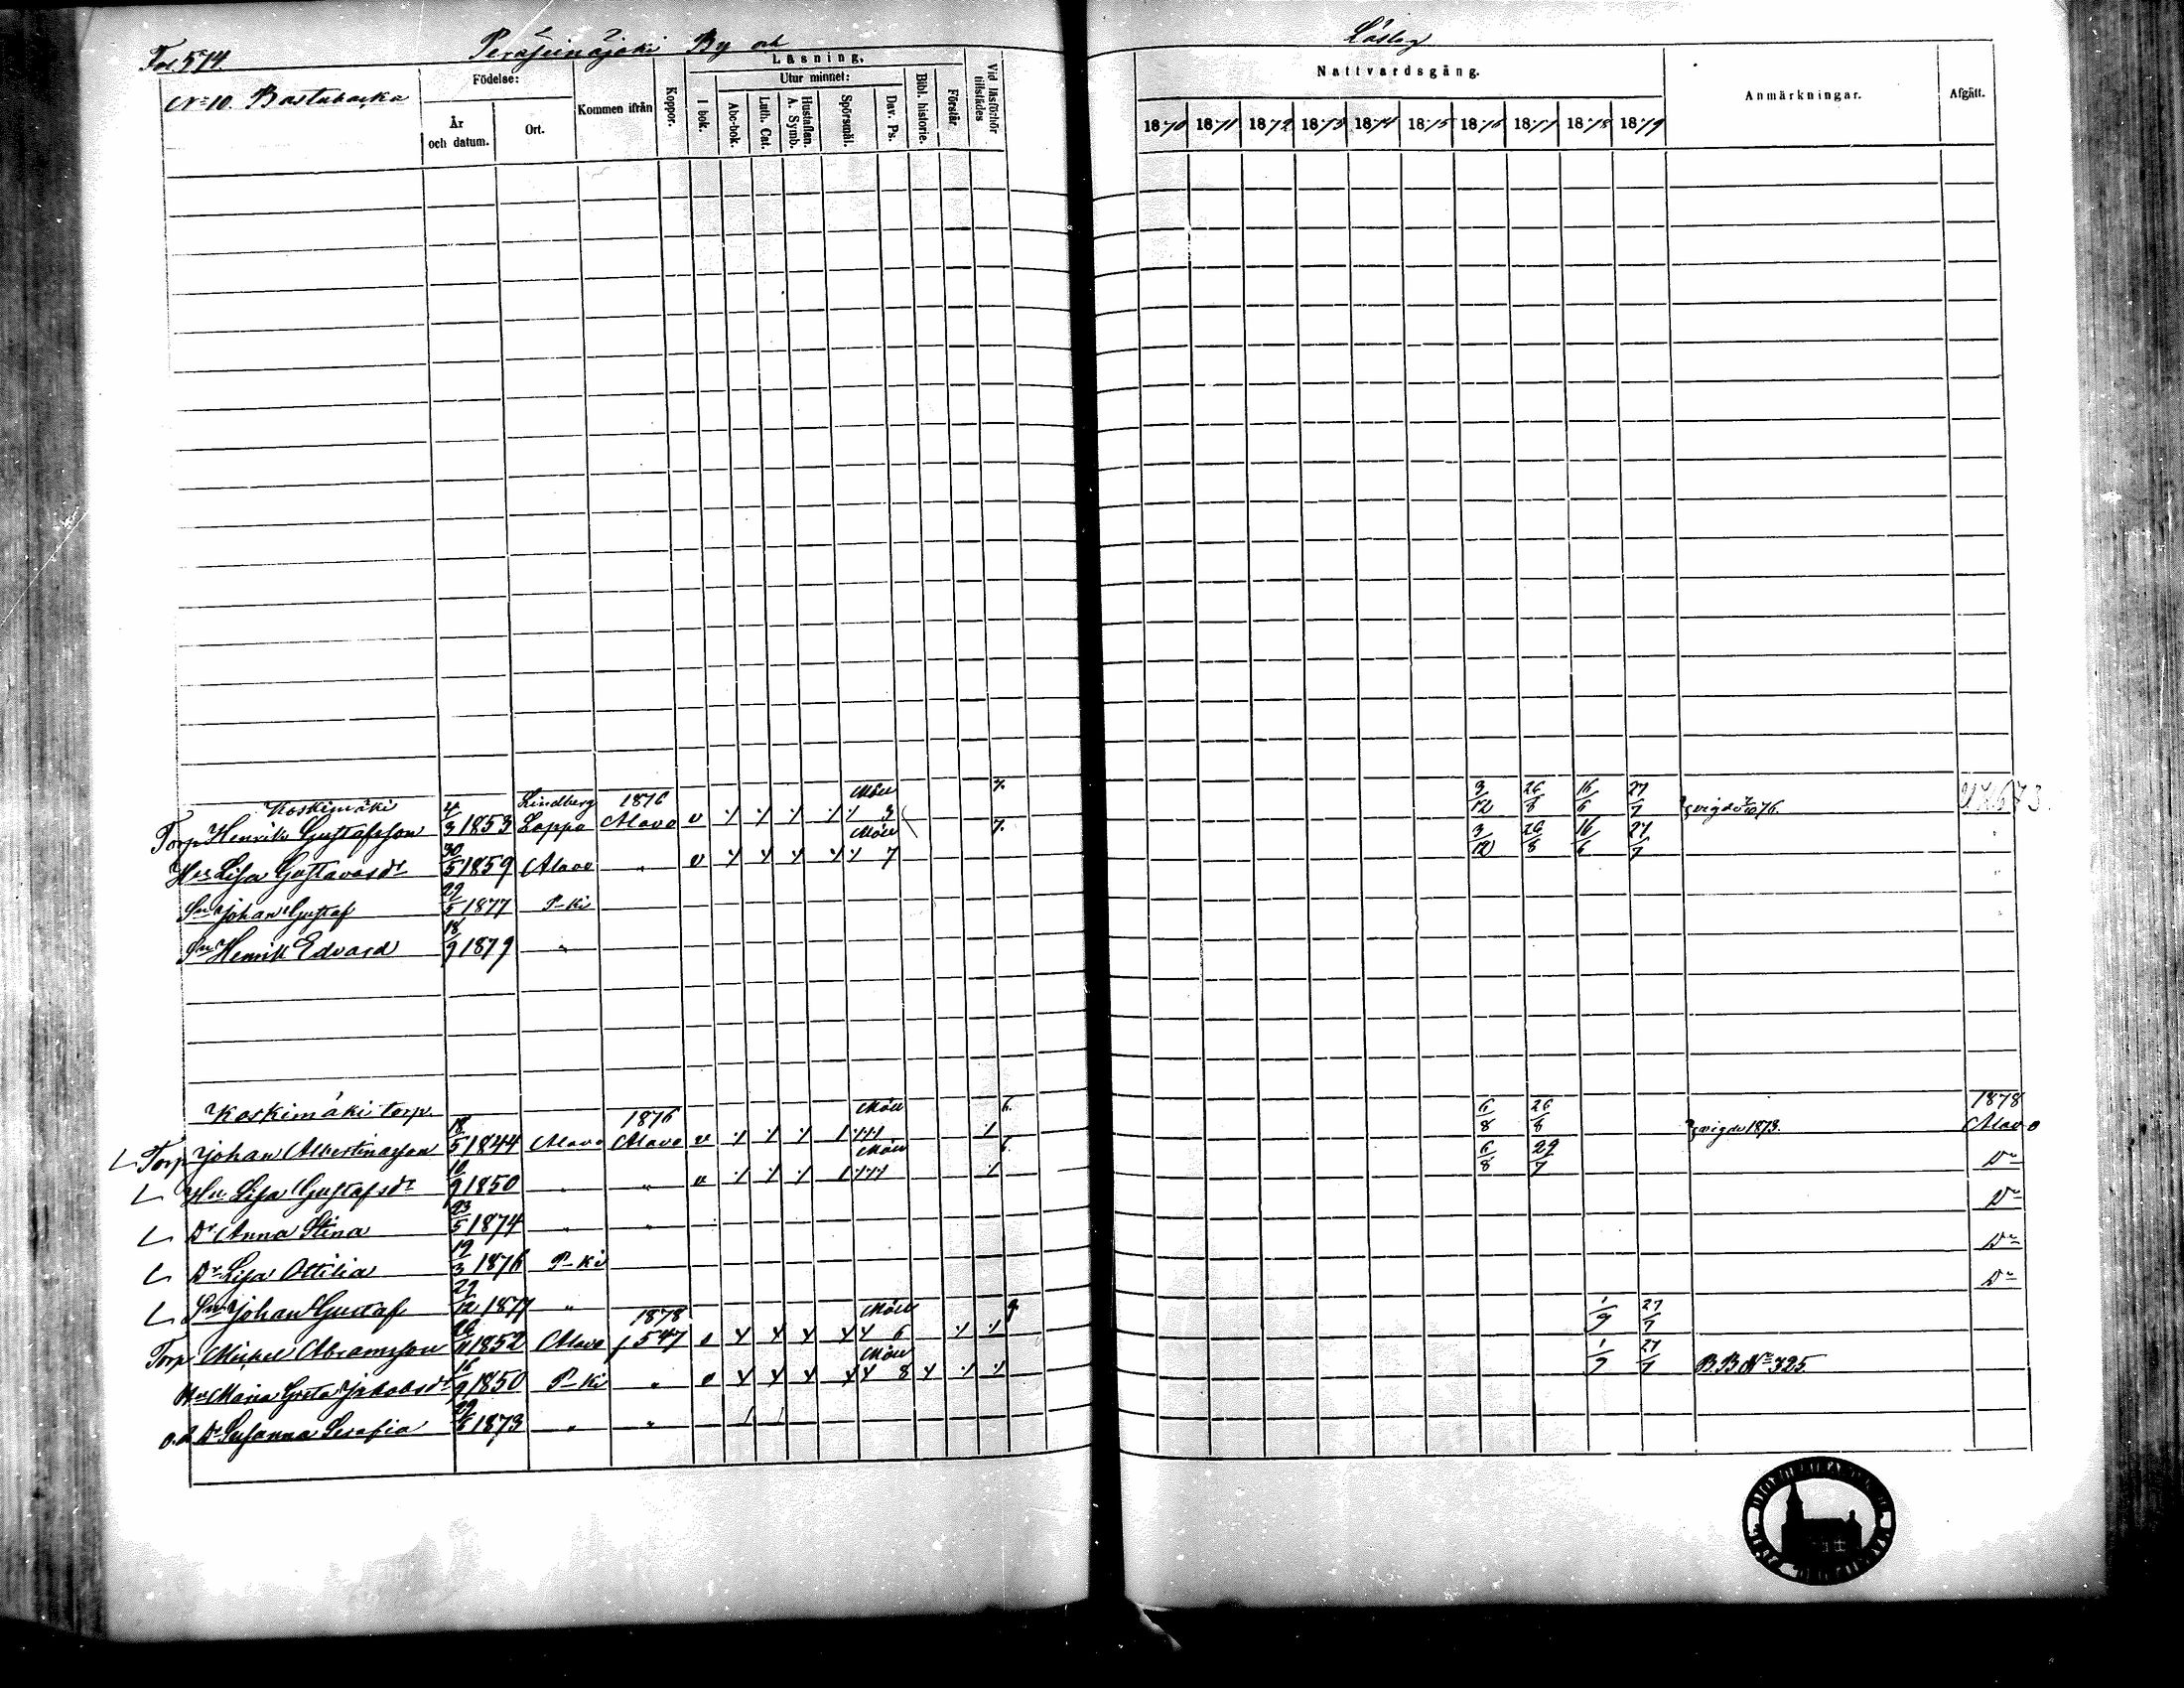 Fol 574. Peräseinäjoki By och Läslag
No 10. Bastubacka
Födelse:
År och datum.
Ort.
Kommen ifrån
Koppor.
Läsning.
I bok.
Utur minnet:
Abc-bok.
Luth. Cat.
Hustaflan. A. Symb.
Spörsmål.
Dav. Ps.
Bibl. historie.
Förstår.
Vid läsförhör tillstädes
Nattvardsgång.
1870 1871 1872 1873 1874 1875 1876 1877 1878 1879
Anmärkningar.
Afgått.
Koskimäki Lindberg 1876
Torp Henrik Gustafsson 4/3 1853 Lappo Alavo v 3 7. 3/12 26/8 16/6 27/7
Hu Lisa Gustavasdr 30/5 1859 Alavo " v 7 7. 3/12 26/8 16/6 27/7
Sn Johan Gustaf 29/5 1877 P-ki
Sn Henrik Edvard 18/9 1879 "
Koskimäki torp. 1876 1878
Torp Johan Albertinasson 18/5 1844 Alavo Alavo v 6. 6/8 26/8 vigde 1873. Alavo
Hu Lisa Gustafsdr 10/9 1850 " " v 6. 6/8 29/7 Do
Dr Anna Stina 23/5 1874 " " Do
Dr Lisa Ottilia 19/3 1876 P-ki Do
Sn Johan Gustaf 27/12 1877 " Do
1878
Torp Michel Abramsson 1852 Alavo f 547 6 9 1/9 27/7
Hu Maria Greta Jakobsdr 16/9 1850 P-ki " 8 27/7 B.B. No 325
o.ä Dr Susanna Serafia 1873 " "